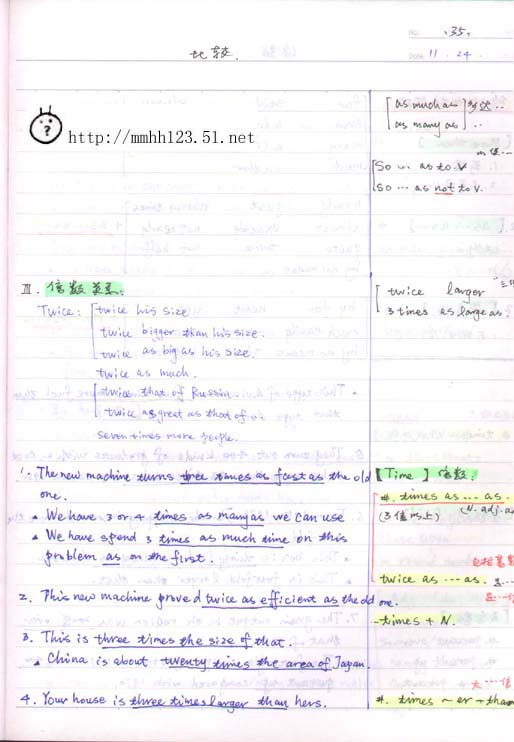 No. .35.
Date 11 . 24 .
比较.
http://mmhh123.51.net
as much as
as many as
So ... as to V
So ... as not to V.
III. 倍数关系:
Twice: twice his size
twice bigger than his size.
twice as big as his size.
twice as much.
twice that of Russia.
twice as great as that of
seven times more people.
twice larger
3 times as large as.
1. The new machine turns three times as fast as the old
one.
We have 3 or 4 times as many as we can use
We have spend 3 times as much time on this
problem as on the first.
2. This new machine proved twice as efficient as the old one.
3. This is three times the size of that.
China is about twenty times the area of Japan.
4. Your house is three times larger than hers.
【Time】倍数:
#. times as ... as.
(3倍以上) (N. adj. a
twice as ... as.
-times + N.
#. times ~er + than